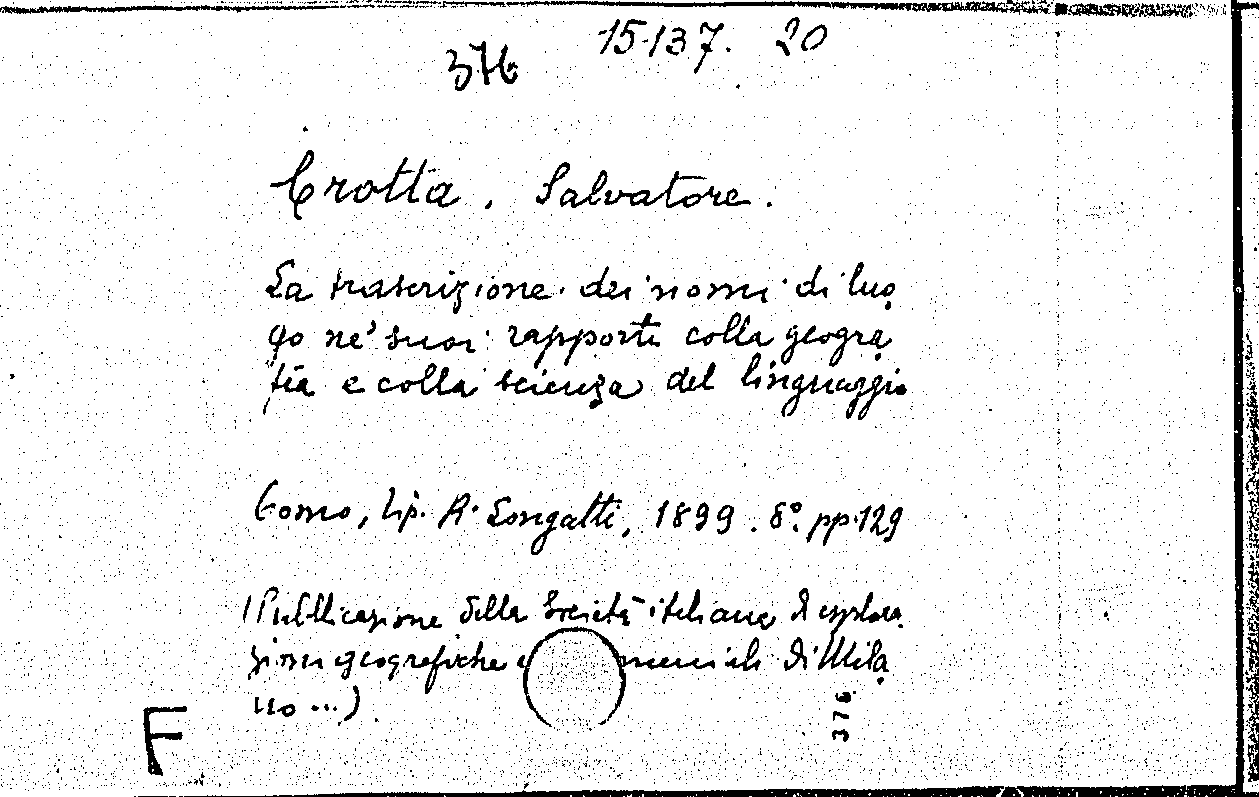 376 15-137. 20
Crotta, Salvatore.
La trascrizione dei nomi di luo
go ne' suoi rapporti colla geogra
fia e colla scienza del linguaggio
Como, tip. A. Longatti, 1899. 8°. pp. 129
(Pubblicazione della Società italiana di esplora
zioni geografiche e merciali di Mila
no ...)
376
F